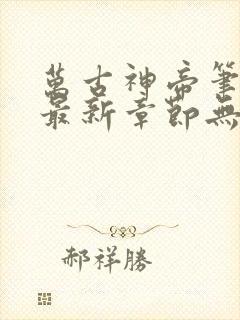 萬古神帝筆
最新章節無
郝祥勝